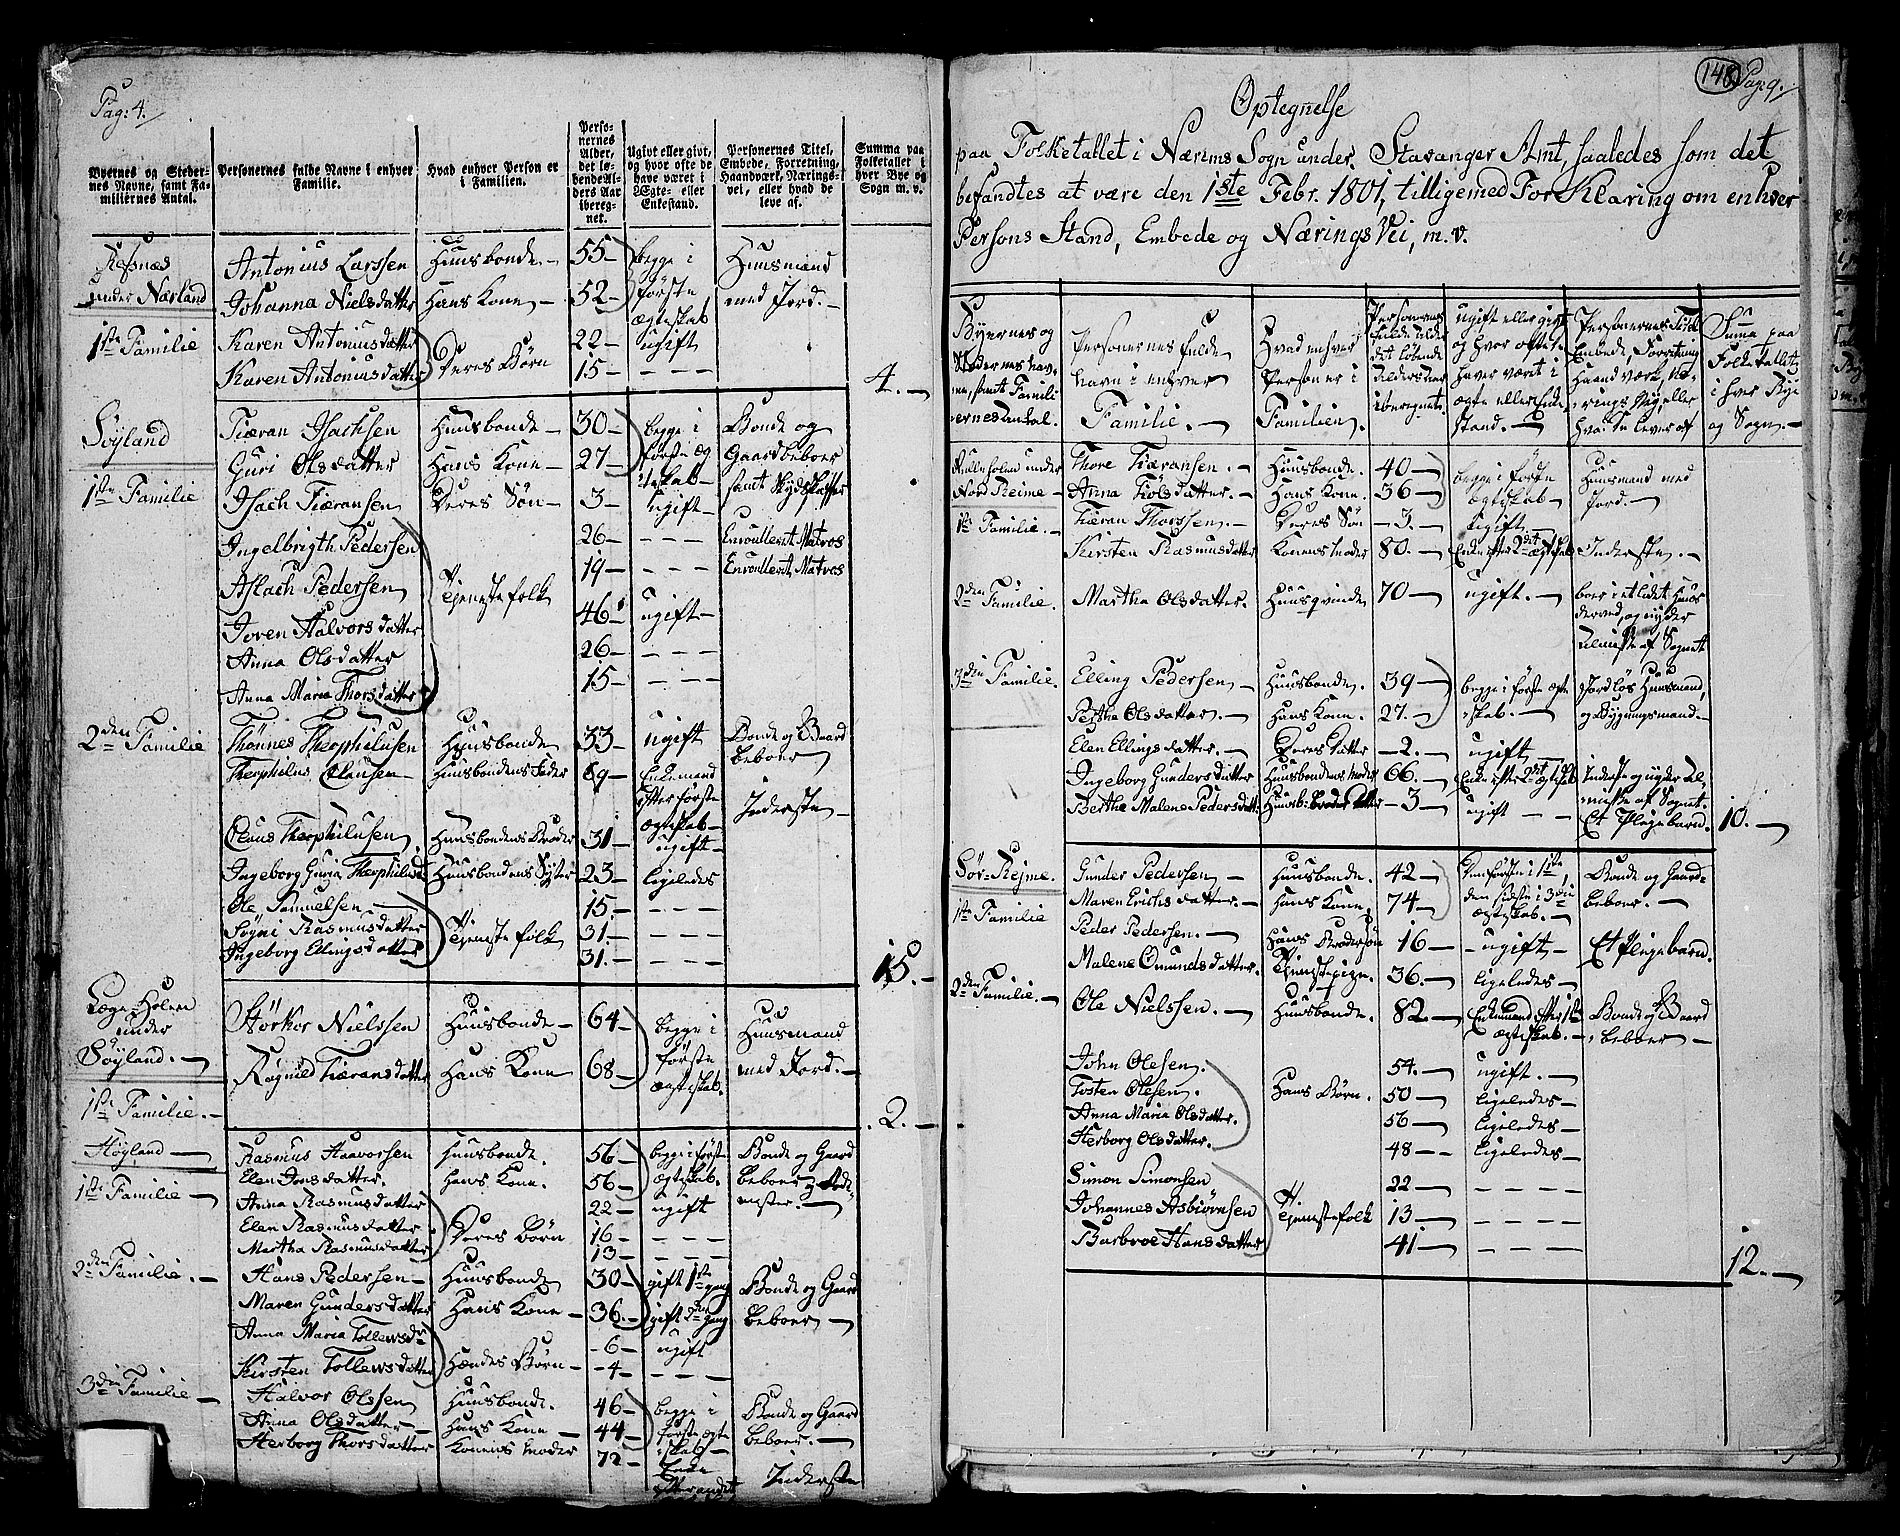 Pag: 4.
Byernes og Stedernes Navne, samt Familiernes Antal. | Personernes fulde Navne i enhver Familie. | Hvad enhver Person er i Familien. | Personernes Alder, det løbende Alders Aar iberegnet. | Ugivt eller givt, og hvor ofte de have været i Ægte- eller Enkestand. | Personernes Titel, Embede, Forretning, Haandværk, Næringsvei, eller hvad de leve af. | Summa paa Folketallet i hver Bye og Sogn m. v.
Refsnæs under Nærland
1ste Familie
Antonius Larssen | Huusbonde | 55 | begge i første ægteskab | Huusmand med Jord.
Johanna Nielsdatter | Hans Kone | 52
Karen Antoniusdatter | Deres Børn | 22 | ugift
Karen Antoniusdatter | 15 | – – –
4.
Söyland
1ste Familie
Tiæran Isachsen | Huusbonde | 30 | begge i første ægteskab | Bonde og Gaardbeboer samt Skydskaffer
Guri Olsdatter | Hans Kone | 27
Isach Tiæransen | Deres Søn | 3 | ugift
Ingelbrigth Pedersen | Tjenestefolk | 26 | – – – | Enroulleret Matros
Aslach Pedersen | 19 | – – – | Enroulleret Matros
Joren Halvorsdatter | 46 | ugift
Anna Olsdatter | 26 | – – –
Anna Maria Thorsdatter | 15 | – – –
2den Familie
Thönnes Theophilusen | Huusbonde | 33 | ugift | Bonde og Gaard beboer
Theophilus Clausen | Huusbondens Fader | 69 | Enkemand efter første ægteskab | Inderste
Claus Theophilusen | Huusbondens Broder | 31 | ugift
Ingeborg Guria Theophilusd: | Huusbondens Syster | 23 | ligeledes
Ole Samuelsen | Tjenestefolk | 15 | – – –
Sögni Rasmusdatter | 31 | – – –
Ingeborg Ellingsdatter | 31 | – – –
15.
Holen under Söyland.
1ste Familie.
Störkor Nielssen | Huusbonde | 64 | begge i første ægteskab. | Huusmand med Jord.
Ragnild Tiæransdatter | Hans Kone | 68
2.
Höyland
1ste Familie
Rasmus Haavorsen | Huusbonde. | 56 | begge i første ægteskab. | Bonde og Gaard beboer
Elen Jonsdatter. | Hans Kone. | 56
Anna Rasmusdatter | Deres Børn | 22 | ugift
Elen Rasmusdatter | 16 | – – –
Martha Rasmusdatter | 13 | – – –
2den Familie.
Hans Pedersen | Huusbonde | 30 | gift 1ste gang | Bonde og Gaard beboer
Maren Gundersdatter | Hans Kone | 36 | gift 2den gang
Anna Maria Tollewsdr | Hendes Børn | 6 | ugift
Kirsten Tollewsdatter | 4 | – – –
3die Familie
Halvor Olssen | Huusbonde. | 46 | begge i første ægteskab | Bonde og Gaard beboer.
Anna Olsdatter | Hans Kone | 44
Herborg Thorsdatter | Konens Moder | 72 | Enke | Inderste
148 Pag: 9.
Optegnelse
paa Folketallet i Nærims Sogn under Stavanger Amt, saaledes som det
befandtes at være den 1ste Febr. 1801, tilligemed Forklaring om enhver
Persons Stand, Embede og Nærings Vei, m. v.
Byernes og Stedernes navne, samt Familiernes Antal. | Personernes fulde navn i enhver Familie. | Hvad enhver Person er i Familien. | Personernes fulde Alder det løbende Alders Aar iberegnet. | ugift eller gift og hvor ofte haver været i ægte eller Enkestand. | Personernes Titel Embede, Forretning Haandværk, Nærings Vey, eller hva: de lever af | Suma paa Folketallet i hver Bye og Sogn.
Kulleholm under Nord Reime
1ste Familie.
Thore Tiæransen. | Huusbonde. | 40 | begge i første ægteskab | Huusmand med Jord.
Anna Kolsdatter. | Hans Kone. | 36
Tiæran Thorssen. | Deres Søn | 3. | Ugift.
Kirsten Rasmusdatter | Konens Moder | 80. | Enke efter 2det ægteskab | Inderste.
2den Familie.
Martha Olsdatter. | Huusqvinde | 70 | ugift. | boer i et lidet Huus derved, og nyder Almisse af Sognet
3die Familie.
Elling Pedersen | Huusbonde. | 39 | begge i første ægteskab. | Jordløs Huusmand, og Bygningsmand.
Berthe Olsdatter. | Hans Kone. | 27.
Elen Ellingsdatter. | Deres Datter | 2. | ugift
Ingeborg Gundersdatter | Huusbondens Moder | 66. | Enke efter 2det ægteskab | Inderste og nyder Almisse af Sognet.
Berthe Malene Pedersdatt: | Huusb: Broder Datter | 3 | ugift | Et Pleyebarn.
10.
Sör-Rejme.
1ste Familie
Gunder Pedersen | Huusbonde. | 42 | den første i 1ste, den sidste i 3die ægteskab. | Bonde og Gaardbeboer.
Maren Erichsdatter. | Hans Kone | 74
Peder Pedersen. | Hans Brodersøn | 16 | ugift | Et Pleyebarn.
Malene Omundsdatter. | Tjenestepige. | 36. | ligeledes
2den Familie.
Ole Nielssen. | Huusbonde. | 82. | Enkemand efter 1ste ægteskab. | Bonde og Gaard beboer
John Olesen. | Hans Børn. | 54. | ugift.
Tosten Olesen. | 50 | ligeledes
Anna Maria Olsdatter. | 56 | ligeledes
Herborg Olsdatter. | 48 | ligeledes
Simon Simonsen | Tjenestefolk | 22 | – – – –
Johannes Asbiörnsen | 13 | – – – –
Barbroe Hansdatter | 41 | – – – –
12.